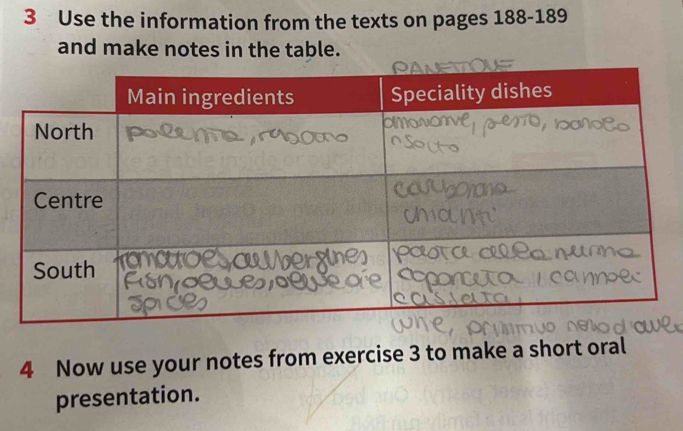 3 Use the information from the texts on pages 188-189
and make notes in the table.
PANETTONE
Main ingredients Speciality dishes
North polenta, amarone, pesto, barolo
risotto
Centre carbonara
chianti
South tomatoes, aubergines pasta alla norma
fish, olives, olive oil caponata, cannoli
spices cassata,
wine, primitivo nero d'avola
4 Now use your notes from exercise 3 to make a short oral
presentation.